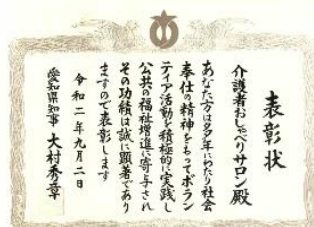 表彰状
介護者おしゃべりサロン殿
あなた方は多年にわたり社会
奉仕の精神をもってボラン
ティア活動を積極的に実践し
公共の福祉増進に寄与され
その功績は誠に顕著であり
ますので表彰します
令和二年九月二日
愛知県知事 大村秀章